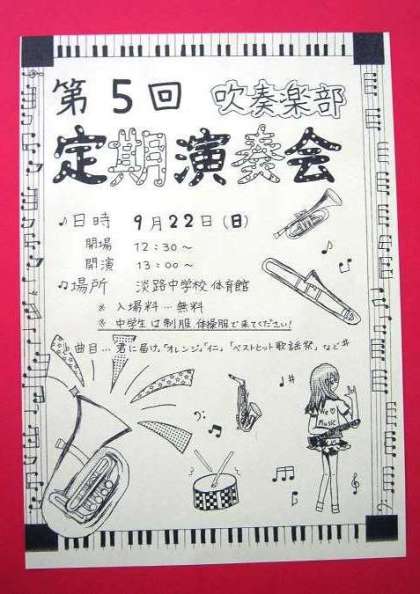 第5回 吹奏楽部
定期演奏会
♪日時 9月22日(日)
開場 12:30～
開演 13:00～
♫場所 淡路中学校 体育館
※ 入場料…無料
※ 中学生は制服、体操服で来てください!
♩曲目…君に届け、「オレンジ」「仁」「ベストヒット歌謡祭」など
We ♡
MUSIC